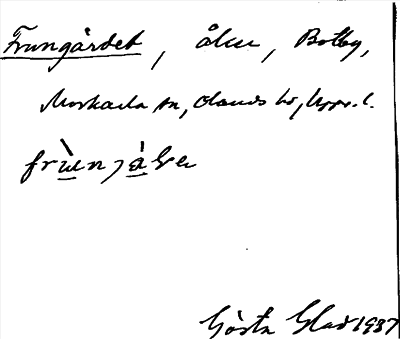 Frungärdet, åker, Botby,
Morkarla sn, Olands hd, Upps. l.
frùnjálṣe
Gösta Glad 1937